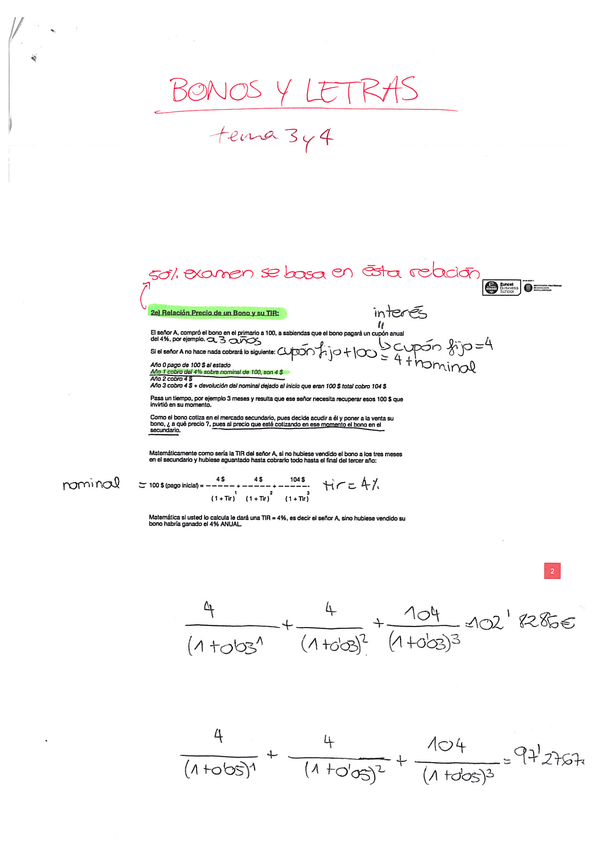 BONOS Y LETRAS
tema 3 y 4
50% examen se basa en ésta relación
Euncet
Business
School
2e) Relación Precio de un Bono y su TIR:
interés
El señor A, compró el bono en el primario a 100, a sabiendas que el bono pagará un cupón anual
del 4%, por ejemplo. a 3 años
cupón fijo=4
Si el señor A no hace nada cobrará lo siguiente: cupón fijo+100 = 4+nominal
Año 0 pago de 100 $ al estado
Año 1 cobro del 4% sobre nominal de 100, son 4 $
Año 2 cobro 4 $
Año 3 cobro 4 $ + devolución del nominal dejado al inicio que eran 100 $ total cobro 104 $
Pasa un tiempo, por ejemplo 3 meses y resulta que ese señor necesita recuperar esos 100 $ que
invirtió en su momento.
Como el bono cotiza en el mercado secundario, pues decide acudir a él y poner a la venta su
bono, ¿ a qué precio ?, pues al precio que está cotizando en ese momento el bono en el
secundario.
Matemáticamente como sería la TIR del señor A, si no hubiese vendido el bono a los tres meses
en el secundario y hubiese aguantado hasta cobrarlo todo hasta el final del tercer año:
4 $ 4 $ 104 $
nominal = 100 $ (pago inicial) = -------- + -------- + -------- tir = 4%
(1 + Tir)1 (1 + Tir)2 (1 + Tir)3
Matemática si usted lo calcula le dará una TIR = 4%, es decir el señor A, sino hubiese vendido su
bono habría ganado el 4% ANUAL.
2
4 4 104
+ + =102'8286€
(1+0'03)1 (1+0'03)2 (1+0'03)3
4 4 104
+ + =97'2767
(1+0'05)1 (1+0'05)2 (1+0'05)3